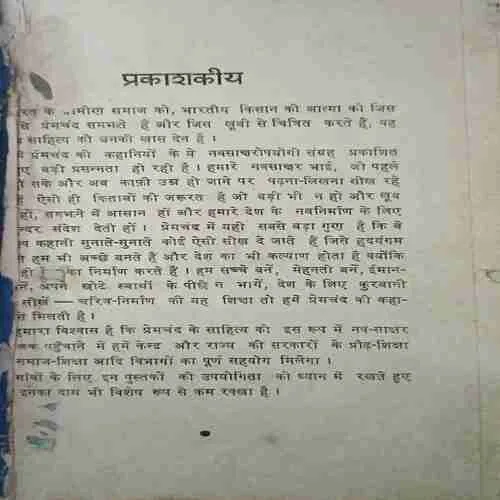 प्रकाशकीय
के ग्रामीण समाज को, भारतीय किसान की आत्मा को जिस
प्रेमचंद समझते हैं और जिस खूबी से चित्रित करते हैं, वह
साहित्य को उनकी खास देन है ।
प्रेमचंद की कहानियों के ये नवसाक्षरोपयोगी संग्रह प्रकाशित
बड़ी प्रसन्नता हो रही है । हमारे नवसाक्षर भाई, जो पहले
सके और अब काफ़ी उम्र हो जाने पर पढ़ना-लिखना सीख रहे
ऐसी ही किताबों की जरूरत है जो बड़ी भी न हों और खूब
हों, समझने में आसान हों और हमारे देश के नवनिर्माण के लिए
संदेश देती हों । प्रेमचंद में यही सबसे बड़ा गुण है कि वे
कहानी सुनाते-सुनाते कोई ऐसी सीख दे जाते हैं जिसे हृदयंगम
हम भी अच्छे बनते हैं और देश का भी कल्याण होता है क्योंकि
का निर्माण करते हैं । हम सच्चे बनें, मेहनती बनें, ईमान-
बनें, अपने छोटे स्वार्थों के पीछे न भागें, देश के लिए क़ुरबानी
सीखें — चरित्र-निर्माण की यह शिक्षा तो हमें प्रेमचंद की कहा-
मिलती है ।
हमारा विश्वास है कि प्रेमचंद के साहित्य को इस रूप में नव-साक्षर
तक पहुँचाने में हमें केन्द्र और राज्य की सरकारों के प्रौढ़-शिक्षा
समाज-शिक्षा आदि विभागों का पूर्ण सहयोग मिलेगा ।
गाँवों के लिए इन पुस्तकों की उपयोगिता को ध्यान में रखते हुए
इनका दाम भी विशेष रूप से कम रक्खा है ।